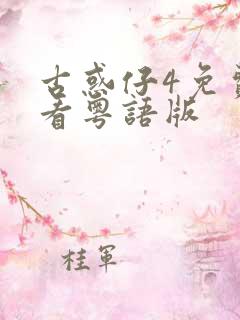 古惑仔4免費
看粵語版
桂軍